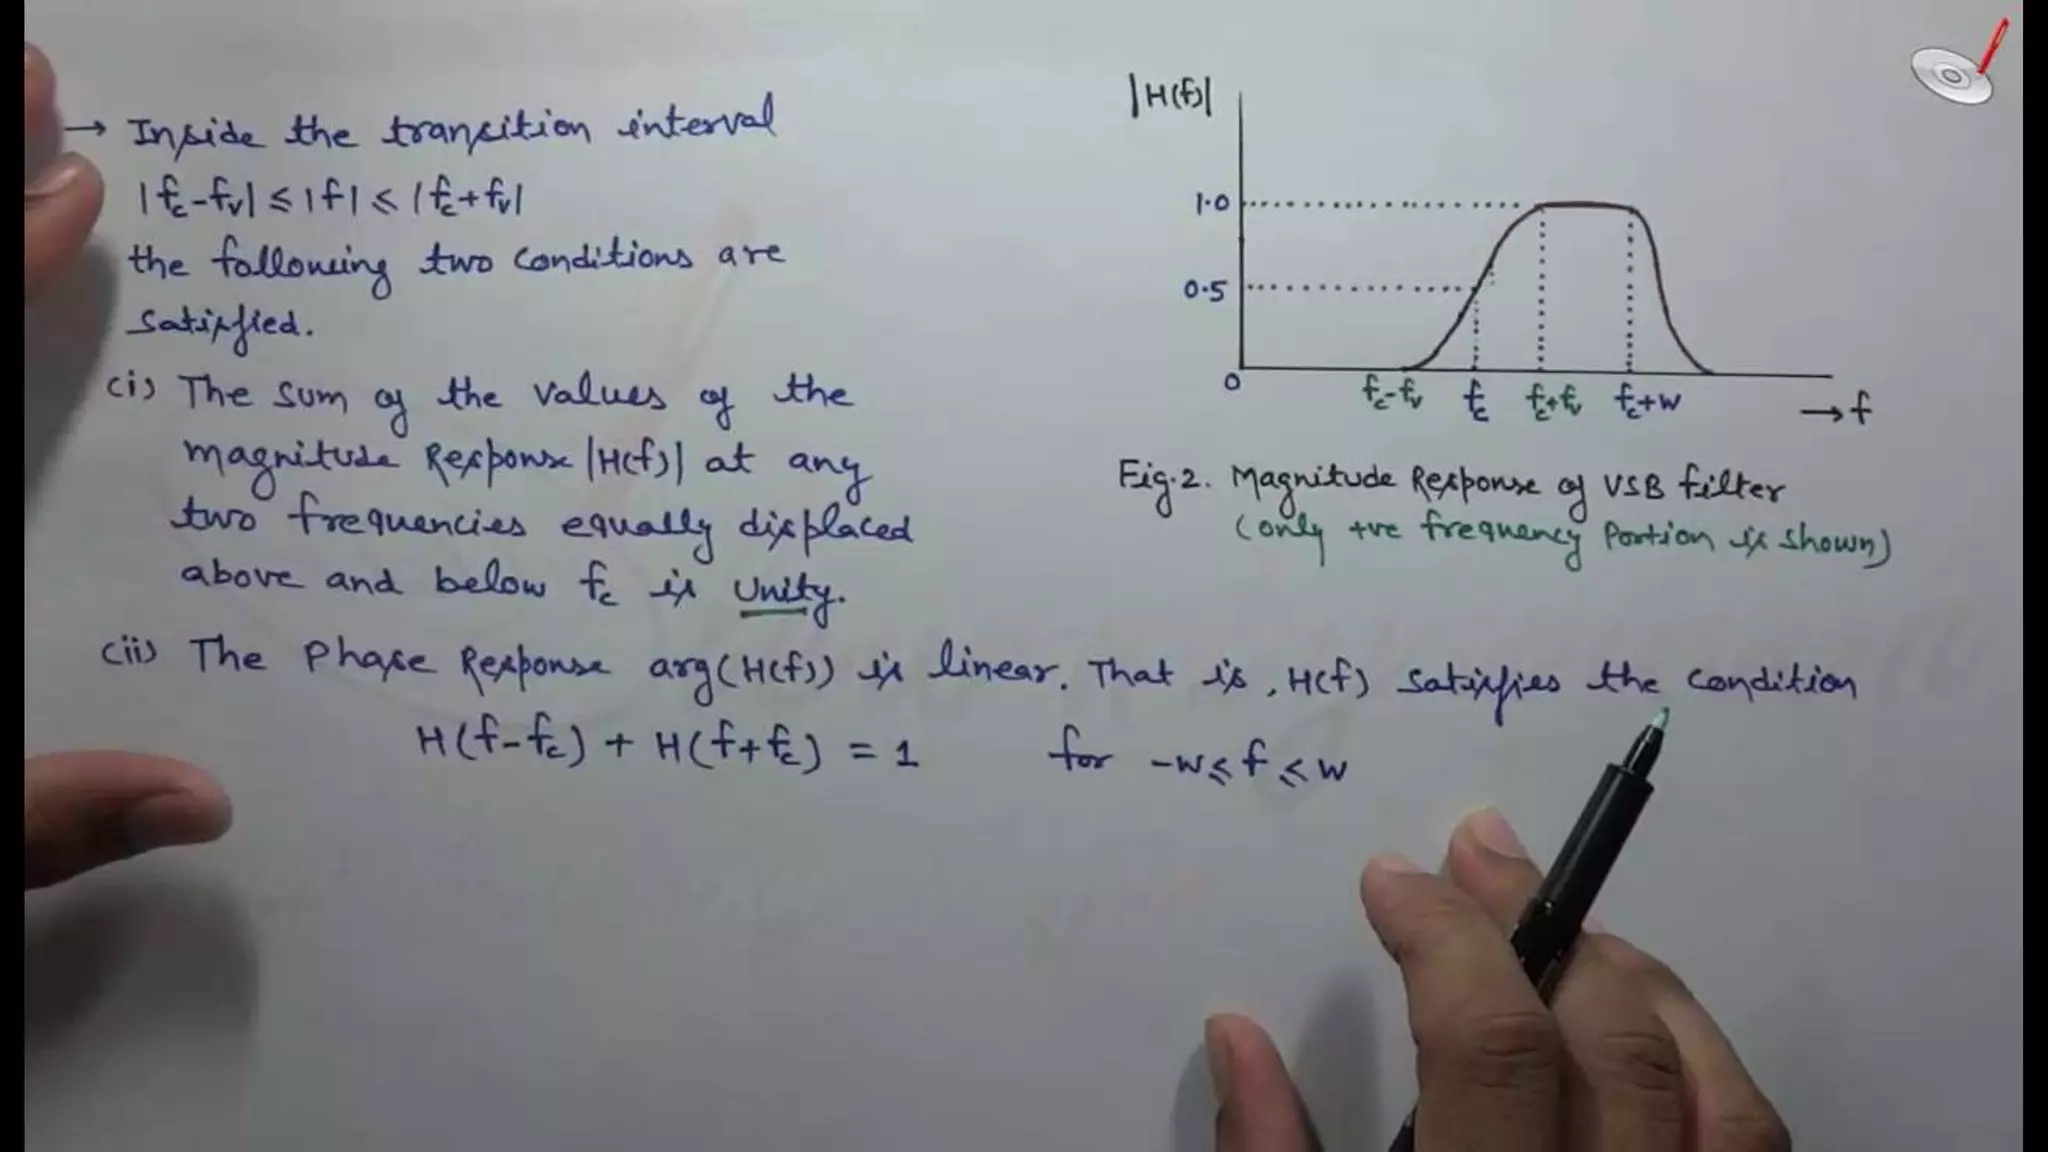 → Inside the transition interval
|fc-fv| ≤ |f| ≤ |fc+fv|
the following two conditions are
satisfied.
(i) The sum of the values of the
magnitude Response |H(f)| at any
two frequencies equally displaced
above and below fc is Unity.
(ii) The Phase Response arg(H(f)) is linear. That is, H(f) satisfies the condition
H(f-fc) + H(f+fc) = 1 for -w ≤ f ≤ w
|H(f)|
1.0
0.5
0 fc-fv fc fc+fv fc+w → f
Fig.2. Magnitude Response of VSB filter
(only +ve frequency Portion is shown)